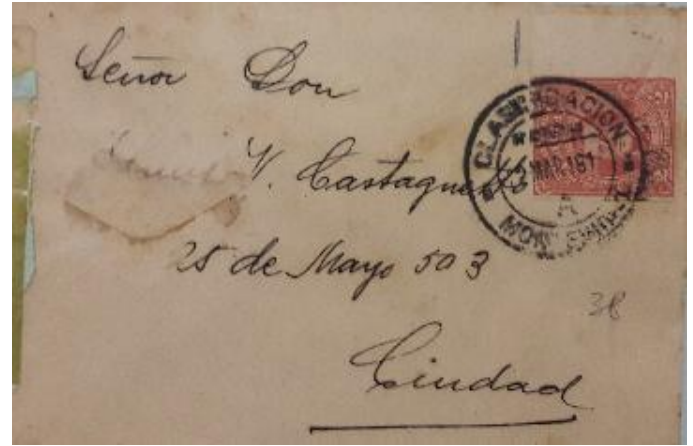 Señor Don
V. Castagnetto
25 de Mayo 503
Ciudad
38
CLASIFICACION
MAR 161
A
MONTEVIDEO